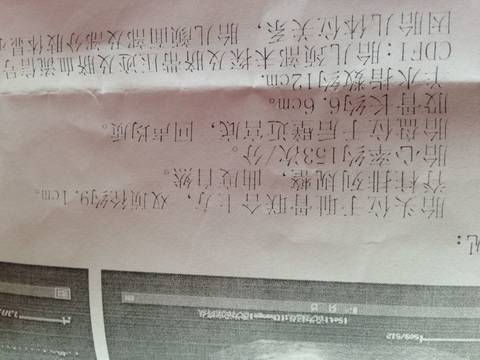 见:
胎头位于耻骨联合上方，双顶径约9.1cm。
脊柱排列规整，曲度自然。
胎心率约153次/分。
胎盘位于后壁近宫底，回声均质。
股骨长约6.6cm。
羊水指数约12cm.
CDFI：胎儿颈部未探及脐带压迹及脐血流信号
因胎儿体位关系，胎儿颜面部及部分肢体显